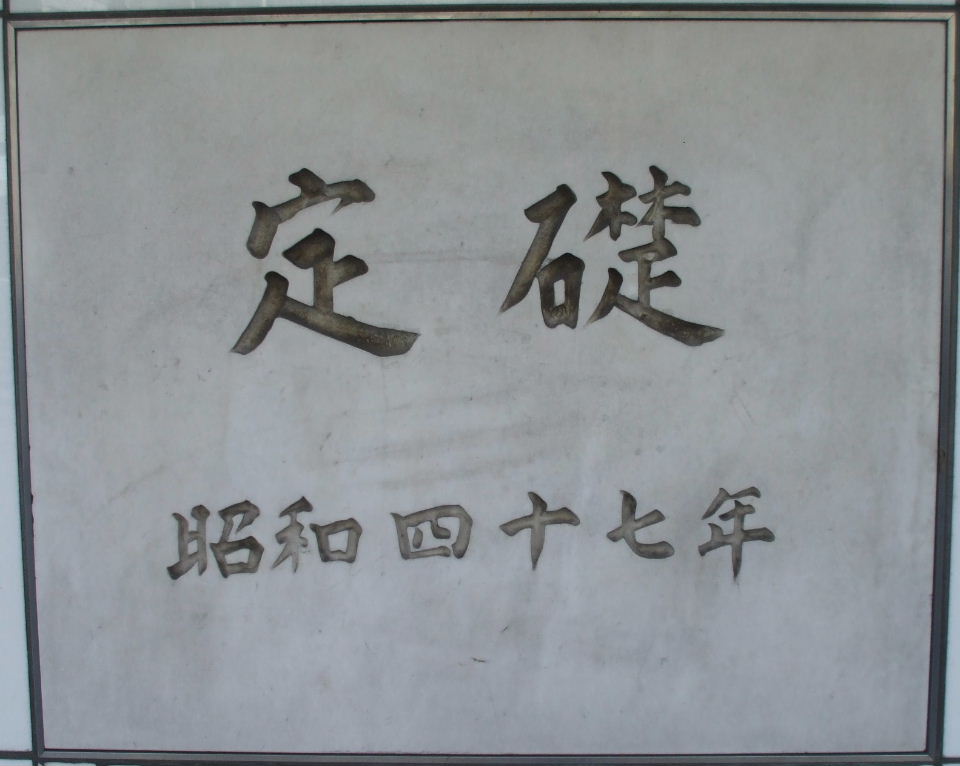 定礎
昭和四十七年